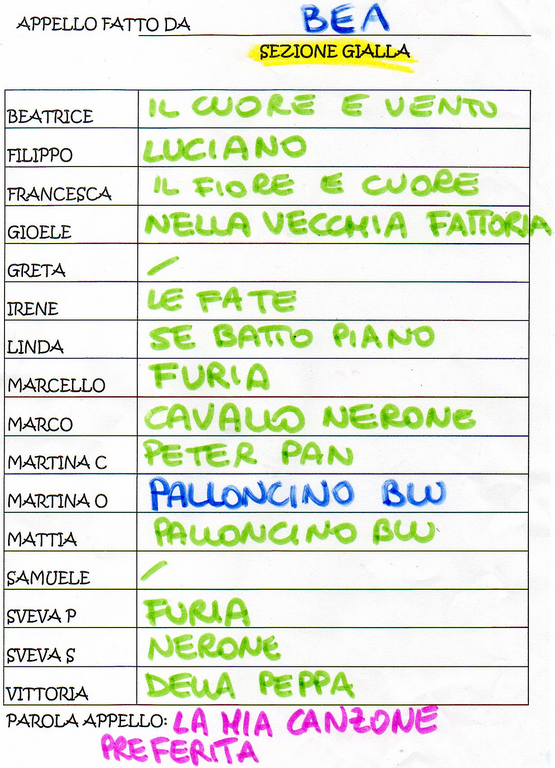 APPELLO FATTO DA BEA
SEZIONE GIALLA
BEATRICE IL CUORE E VENTO
FILIPPO LUCIANO
FRANCESCA IL FIORE E CUORE
GIOELE NELLA VECCHIA FATTORIA
GRETA /
IRENE LE FATE
LINDA SE BATTO PIANO
MARCELLO FURIA
MARCO CAVALLO NERONE
MARTINA C PETER PAN
MARTINA O PALLONCINO BLU
MATTIA PALLONCINO BLU
SAMUELE /
SVEVA P FURIA
SVEVA S NERONE
VITTORIA DELLA PEPPA
PAROLA APPELLO: LA MIA CANZONE
PREFERITA